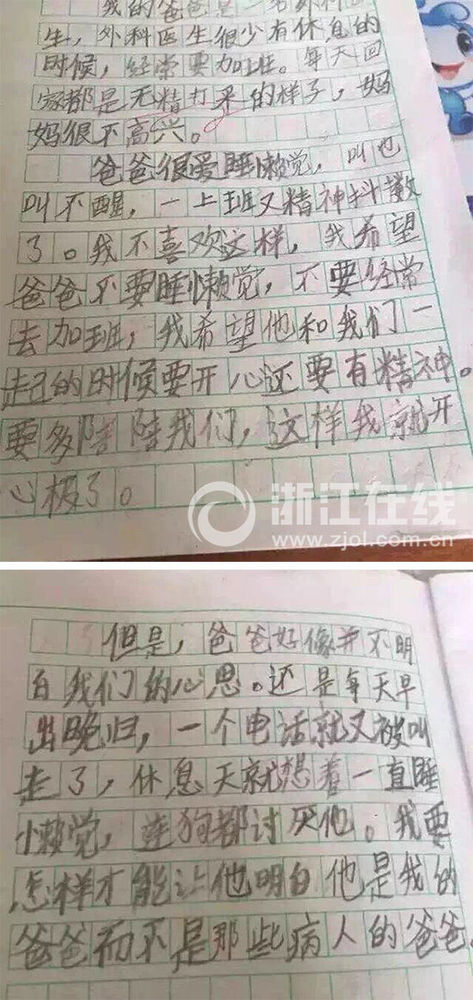 我的爸爸是一名外科医
生，外科医生很少有休息的
时候，经常要加班。每天回
家都是无精打采的样子，妈
妈很不高兴。
爸爸很爱睡懒觉，叫也
叫不醒，一上班又精神抖擞
了。我不喜欢这样，我希望
爸爸不要睡懒觉，不要经常
去加班，我希望他和我们一
起的时候要开心还要有精神。
要多陪陪我们，这样我就开
心极了。
浙江在线
www.zjol.com.cn
但是，爸爸好像并不明
白我们的心思。还是每天早
出晚归，一个电话就又被叫
走了，休息天就想着一直睡
懒觉，连狗都讨厌他。我要
怎样才能让他明白他是我的
爸爸而不是那些病人的爸爸